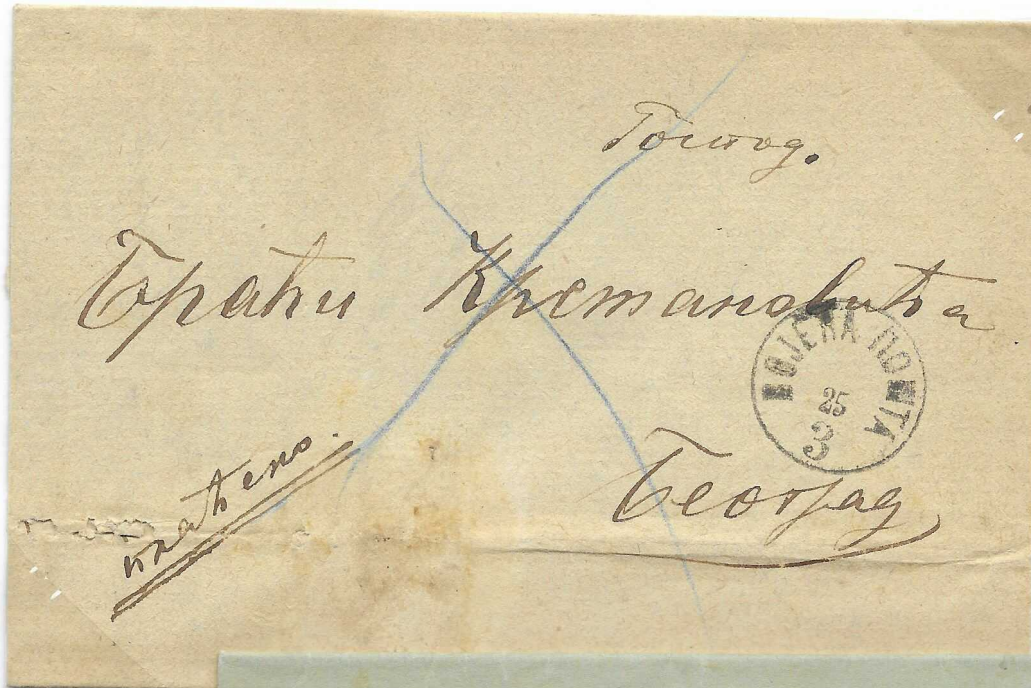 Господ.
Браћи Крстановића
ВОЈЕНА ПОШТА
25
3
Београд
плаћено.